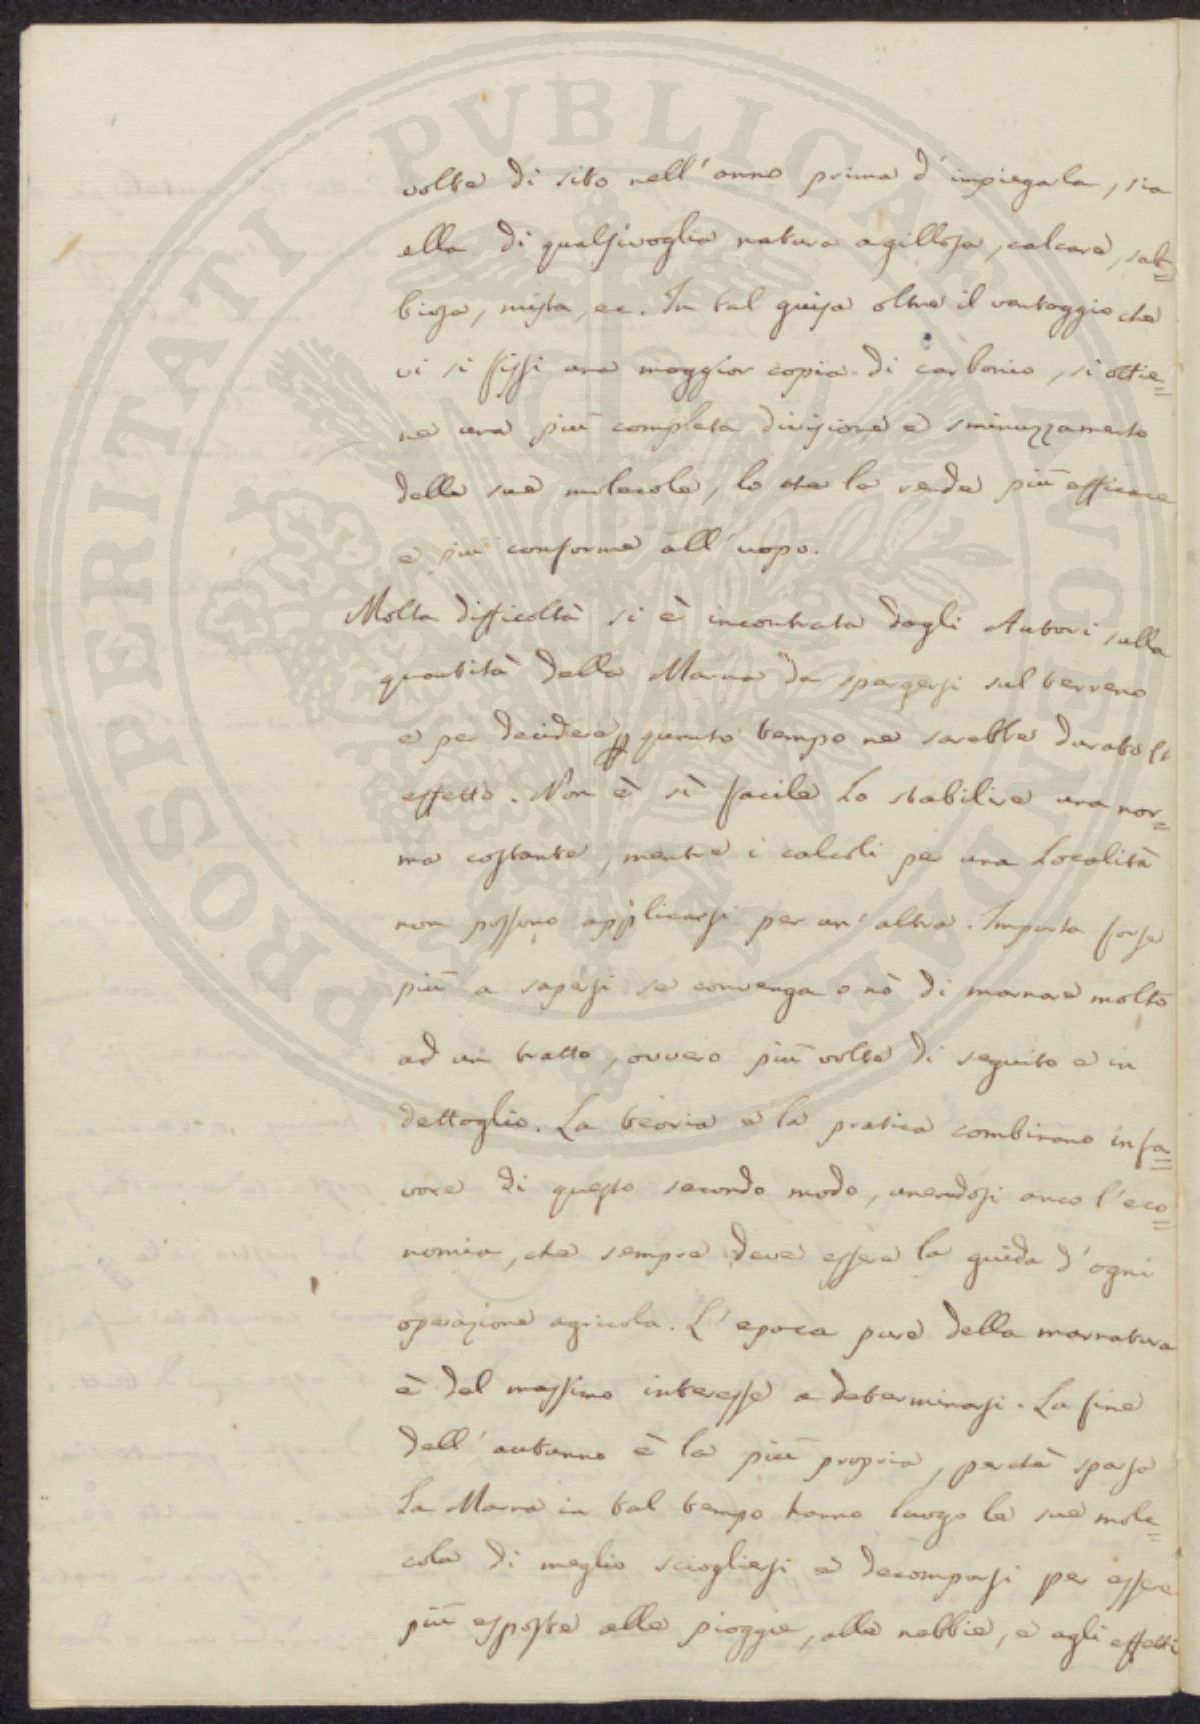 volte di sito nell'anno prima d'impiegarla, sia
ella di qualsivoglia natura agillosa, calcare, sab=
biosa, mista, ec. In tal guisa oltre il vantaggio che
vi si fissi una maggior copia di carbonio, si ottie=
ne una più completa divisione e sminuzzamento
delle sue molecole, lo che la rende più efficace
e più conforme all'uopo.
Molta difficoltà si è incontrata dagli Autori sulla
quantità della Marna da spargersi sul terreno
e per decidere quanto tempo ne sarebbe durato l'
effetto. Non è sì facile lo stabilire una nor=
ma costante, mentre i calcoli per una Località
non possono applicarsi per un'altra. Importa forse
più a sapersi se convenga o nò di marnare molto
ad un tratto, ovvero più volte di seguito e in
dettaglio. La teoria e la pratica combinano in fa=
vore di questo secondo modo, unendosi anco l'eco=
nomia, che sempre deve essere la guida d'ogni
operazione agricola. L'epoca pure della marnatura
è del massimo interesse a determinarsi. La fine
dell'autunno è la più propria, perchè sparsa
la Marna in tal tempo hanno luogo le sue mole=
cole di meglio sciogliersi e decomporsi per essere
più esposte alle pioggie, alle nebbie, e agli effetti
PROSPERITATI PUBLICAE